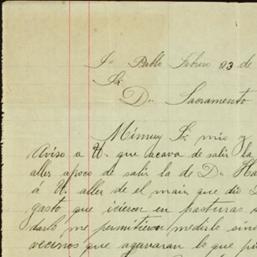 Sn. Pablo Febrero 23 de
Sr.
Dn. Sacramento
Mi muy Sr. mio y
Aviso a U. que acava de salir la
aller apoco de salir la de Dn. Ha
á U. aller de el mais que dio
gasto que icieron en pasturas
darlo me permitieron medirlo sino
vecinos que agavaran lo que